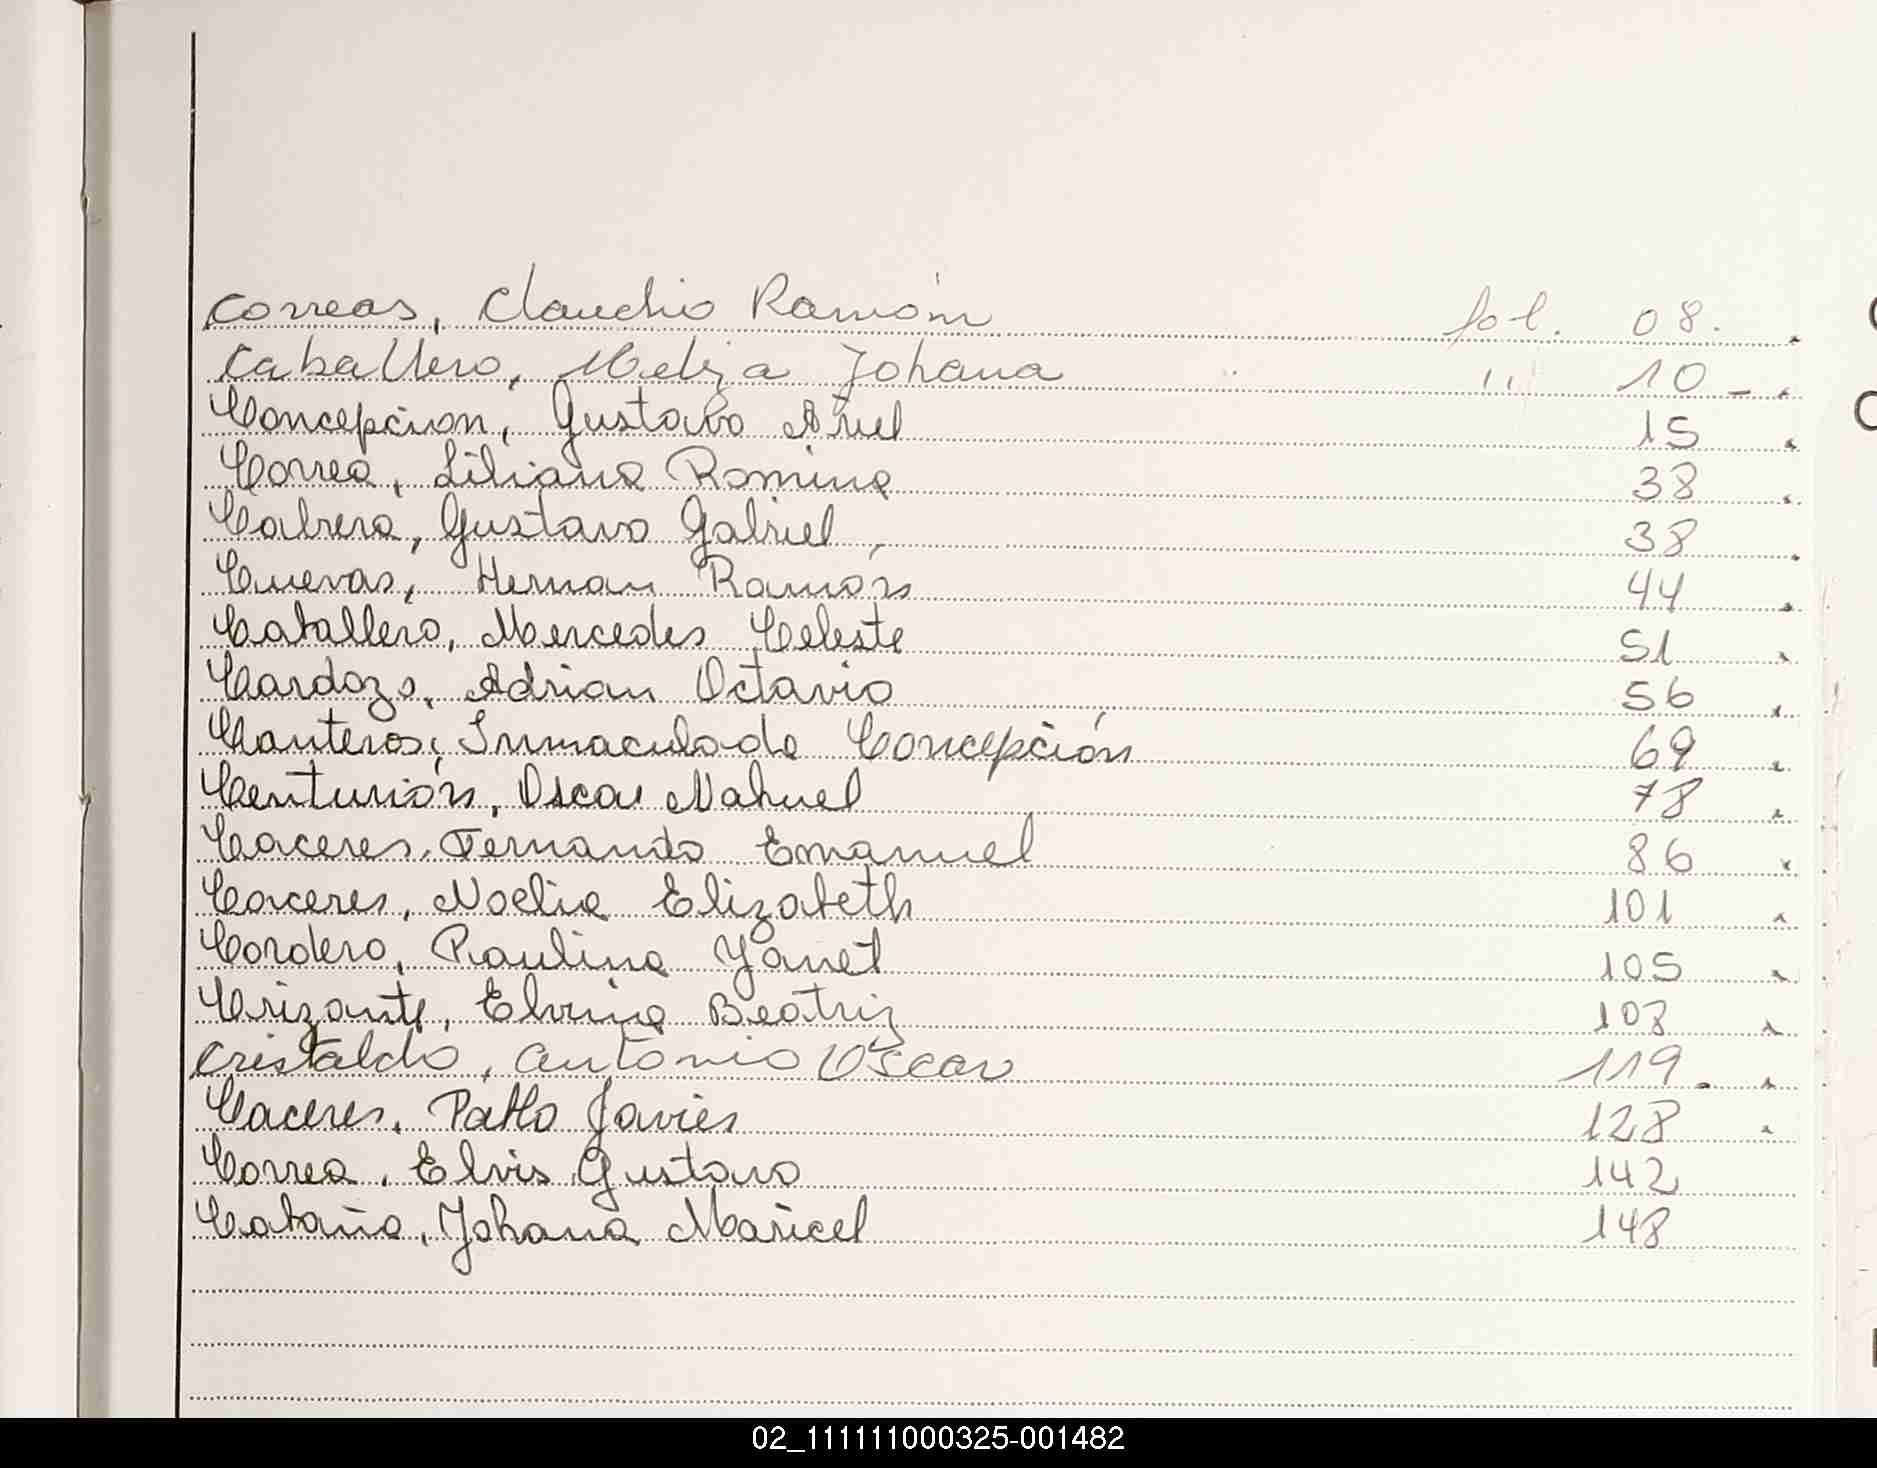 Correas, Claudio Ramón fol. 08.
Caballero, Meliza Johana " 10 -
Concepcion, Gustavo Ariel 15
Correa, Liliana Romina 38
Cabrera, Gustavo Gabriel 38
Cuevas, Hernan Ramón 44
Caballero, Mercedes Celeste 51
Cardozo, Adrian Octavio 56
Canteros, Inmaculada Concepción 69
Centurión, Oscar Nahuel 78
Caceres, Fernando Emanuel 86
Caceres, Noelia Elizabeth 101
Cordero, Paulina Yanet 105
Crizante, Elvina Beatriz 108
Cristaldo, Antonio Oscar 119.
Caceres, Pablo Javier 128
Correa, Elvis Gustavo 142
Cabaña, Johana Maricel 148
02_111111000325-001482